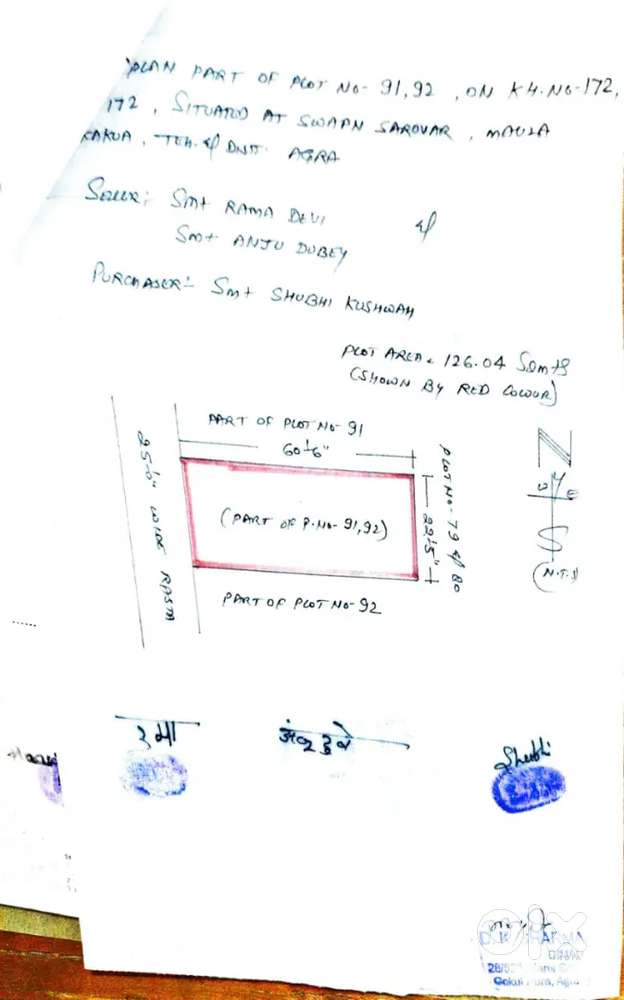 PLAN PART OF PLOT No- 91,92 , ON KH.No-172,
172 , SITUATED AT SWAPN SAROVAR , MAUZA
KAKUA , TEH. & DISTT. AGRA
SELLER:- Smt RAMA DEVI &
Smt ANJU DUBEY
PURCHASER:- Smt SHUBHI KUSHWAH
PLOT AREA = 126.04 Sqmts
(SHOWN BY RED COLOUR)
PART OF PLOT No- 91
60'-6"
25'-0" WIDE RASTA
(PART OF P.No- 91,92)
22'-5"
PLOT No- 79 & 80
N
W E
S
(N.T.S)
PART OF PLOT No- 92
रमा
अंजू दुबे
Shubhi
olx
D.K. SHARMA
Gokul Pura, Agra